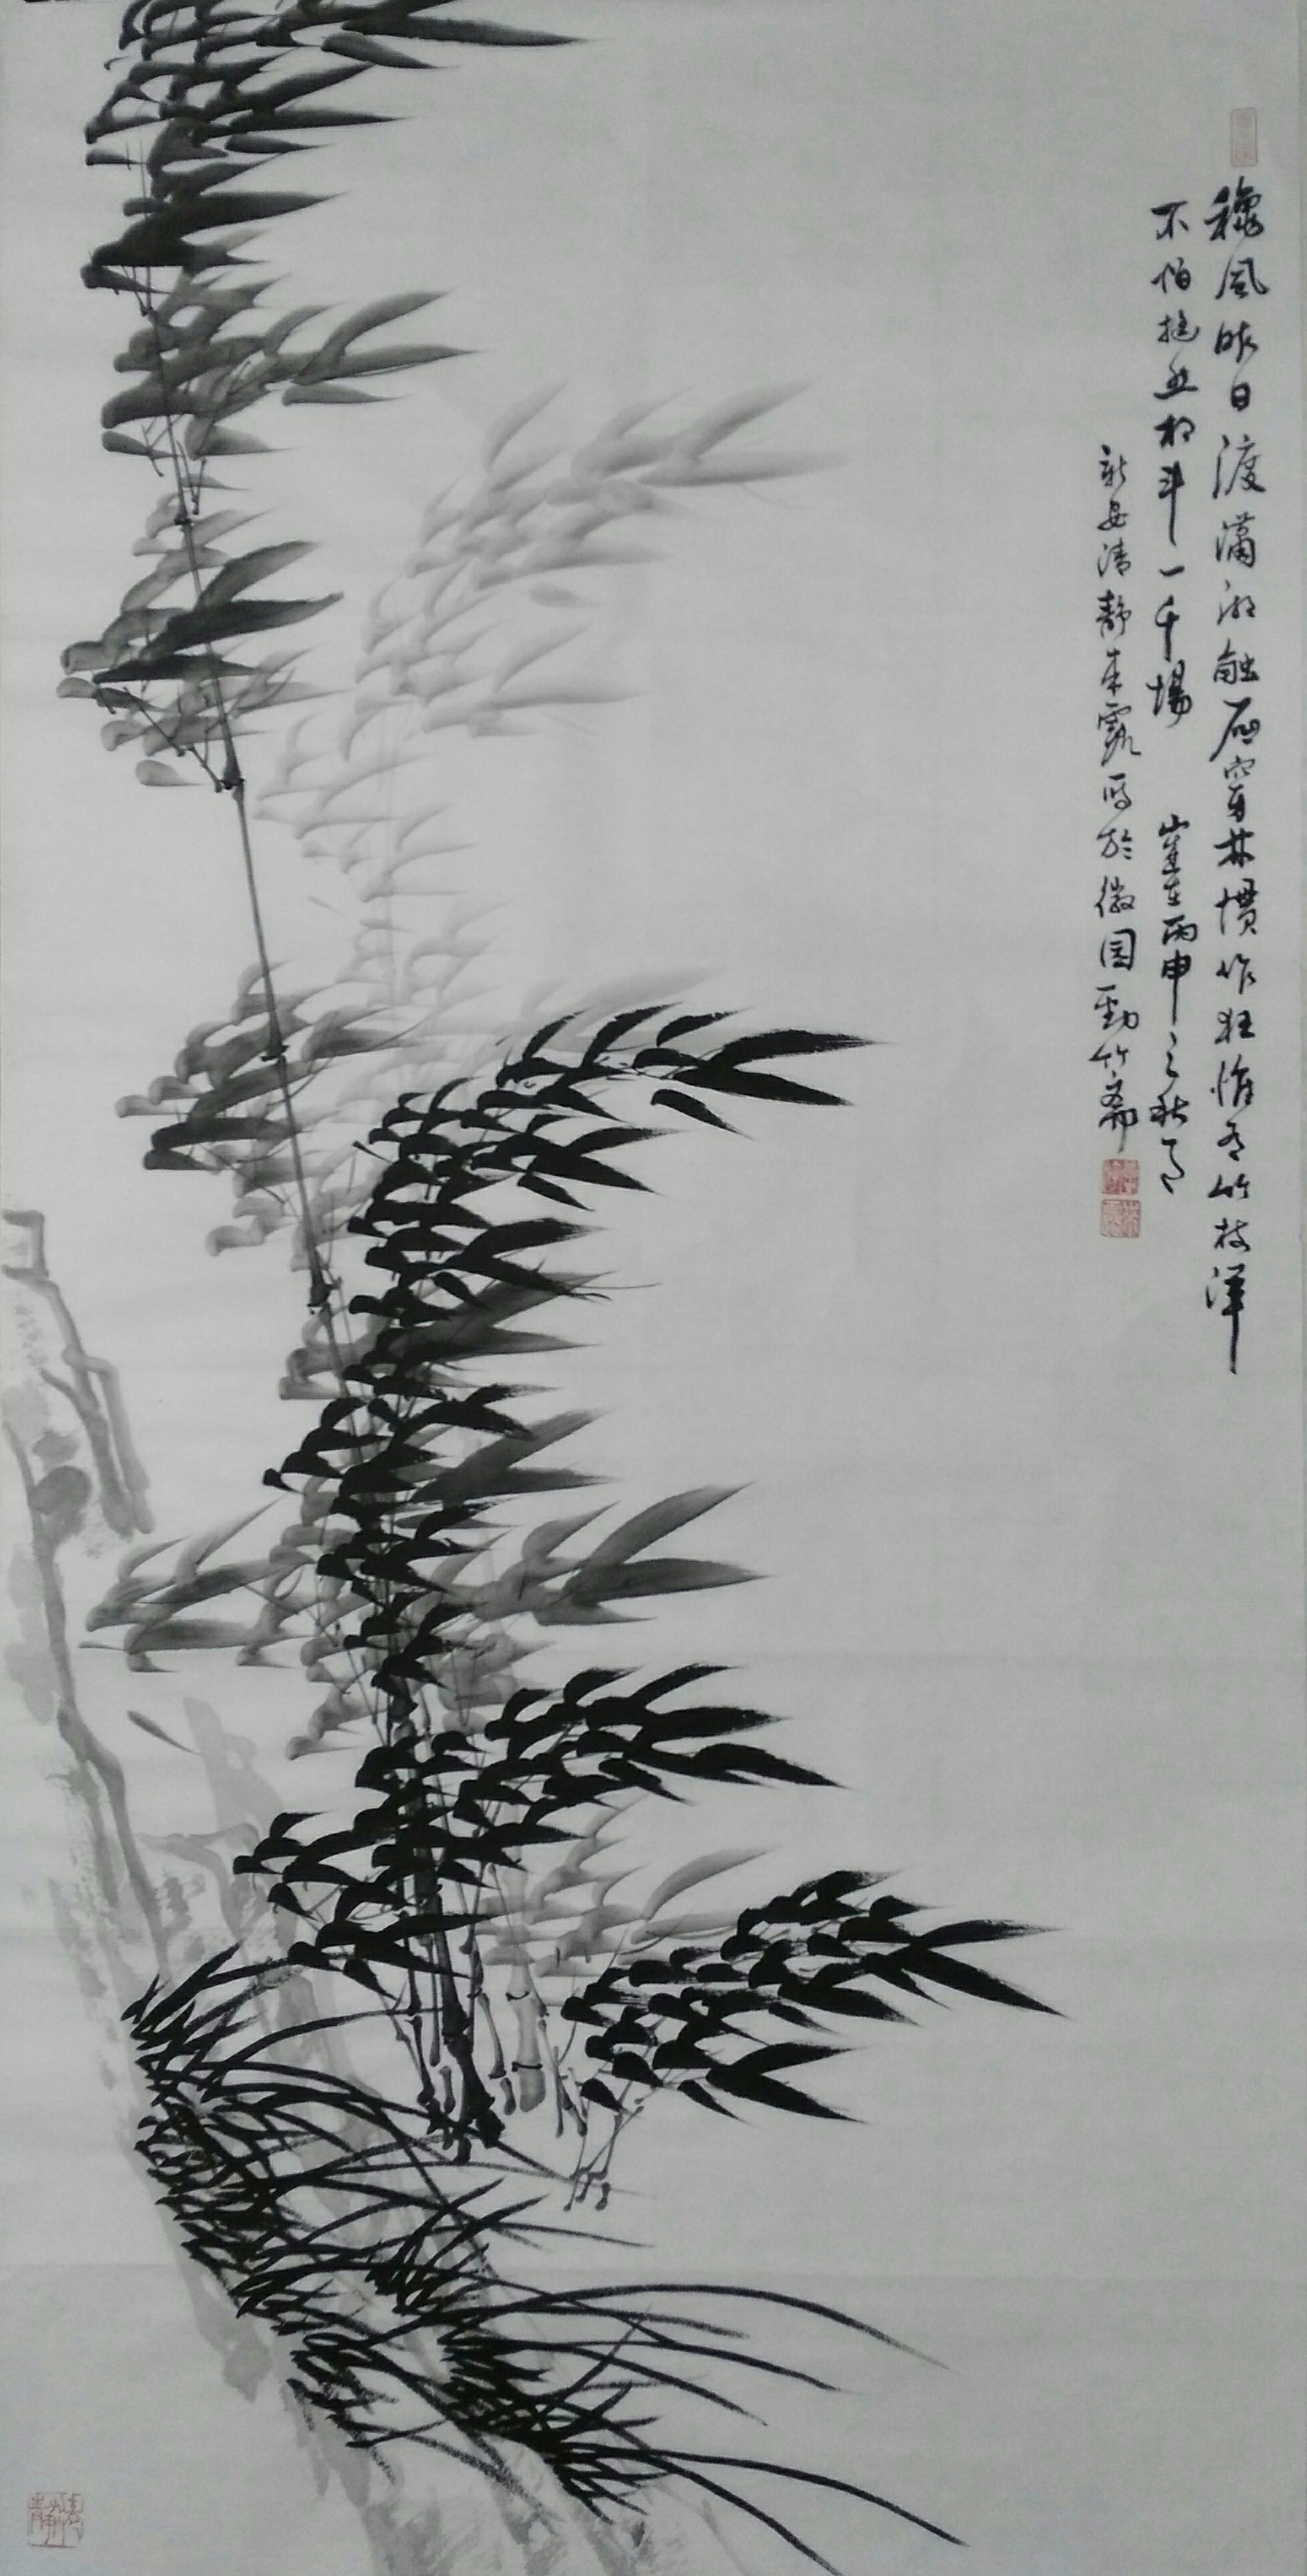 穐風昨日渡瀟湘触石穿林慣作狂惟有竹枝渾
不怕挺然相斗一千場 歲在丙申之秋月
新安清靜朱寫於徽園勁竹齋